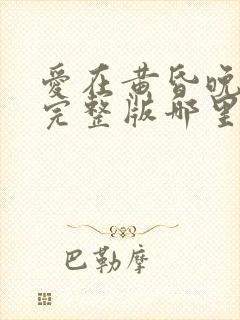 愛在黄昏晚
完整版哪里
巴勒摩